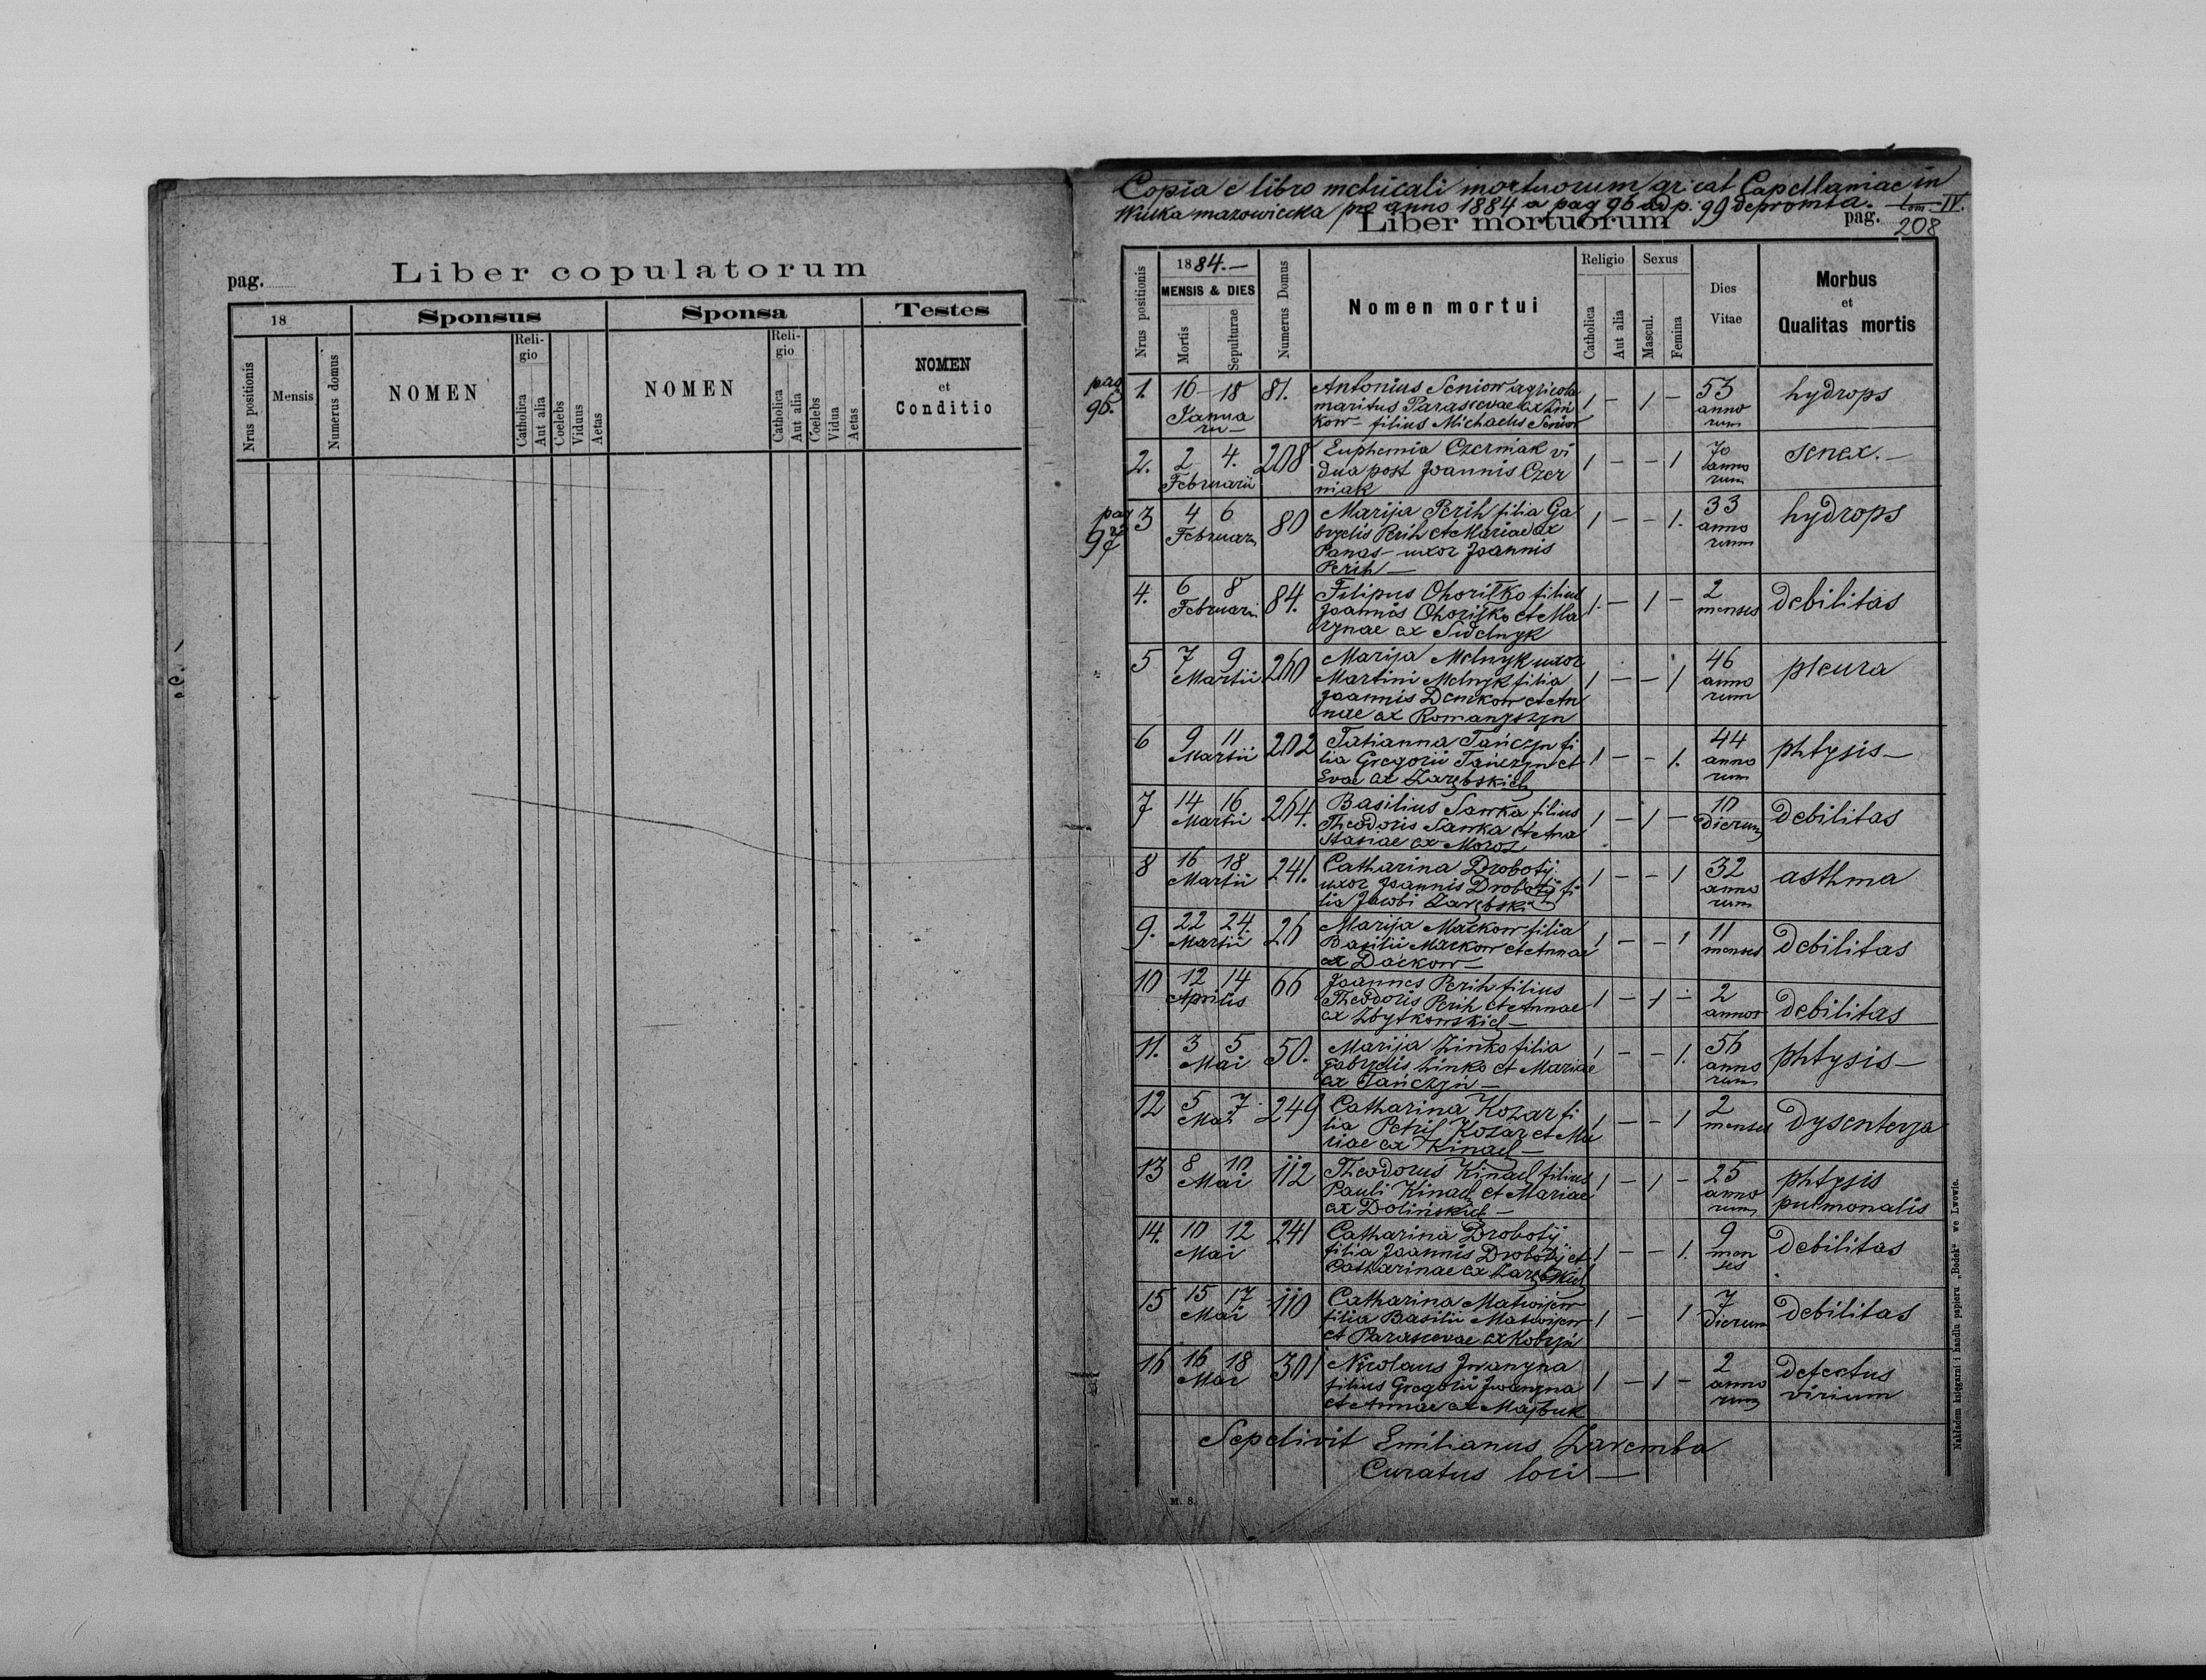 pag.
Liber copulatorum
18
Sponsus
Sponsa
Testes
Nrus positionis
Mensis
Numerus domus
NOMEN
Religio
Catholica
Aut alia
Coelebs
Viduus
Aetas
NOMEN
Religio
Catholica
Aut alia
Coelebs
Vidua
Aetas
NOMEN
et
Conditio
Copia e libro metricali mortuorum gr: cat Capellaniae in
Wulka mazowiecka pro anno 1884 a pag 96 ad p: 99 depromta. Tom IV.
Liber mortuorum
pag. 208
Nrus positionis
1884.—
MENSIS & DIES
Mortis
Sepulturae
Numerus Domus
Nomen mortui
Religio
Catholica
Aut alia
Sexus
Mascul.
Femina
Dies
Vitae
Morbus
et
Qualitas mortis
pag
96.
1. 16 — 18 81. Antonius Seniow agricola 1 — 1 — 53 hydrops
Janua maritus Parascevae ex Zin anno
rii — kow — filius Michaelis Seniow rum
2. 2 4. 208 Euphemia Czerniak vi 1 — — 1 70 senex. —
Februarii dua post Joannis Czer anno
niak rum
pag
97
3 4 6 80 Marija Perih filia Ga 1 — — 1. 33 hydrops
Februarii bryelis Perih et Mariae ex anno
Panas — uxor Joannis rum
Perih —
4. 6 8 84. Filipus Ohoriłko filius 1. — 1 — 2 debilitas
Februarii Joannis Ohoriłko et Ma menses
rynae ex Sidelnyk
5 7 9 260 Marija Melnyk uxor 1 — — 1 46 pleura
Martii Martini Melnyk filia anno
Joannis Demkow et An rum
nae ex Romanyszyn
6 9 11 202 Tatianna Tańczyn fi 1 — — 1. 44 phtysis —
Martii lia Gregorii Tańczyn et anno
Evae ex Zarębskich rum
7 14 16 264. Basilius Sawka filius 1 — 1 — 10 debilitas
Martii Theodoris Sawka et Ana dierum
stasiae ex Moroz
8 16 18 241. Catharina Drobotij 1 — — 1 32 asthma
Martii uxor Joannis Drobotij fi anno
lia Jacobi Zarębski rum
9. 22 24. 26 Marija Maćkow filia 1 — — 1 11 debilitas
Martii Basilii Maćkow et Annae menses
ex Daćkow —
10 12 14 66 Joannes Perih filius 1 — 1 — 2 debilitas
Aprilis Theodoris Perih et Annae annos
ex Zbytkowskich —
11. 3 5 50. Marija Zinko filia 1 — — 1. 56 phtysis —
Mai Gabryelis Zinko et Mariae anno
ex Tańczyn — rum
12 5 7 249 Catharina Kozar fi 1 — — 1 2 dysenterya
Mai lia Petri Kozar et Ma menses
riae ex Kinach —
13 8 10 112 Theodorus Kinach filius 1 — 1 — 25 phtysis
Mai Pauli Kinach et Mariae anno pulmonalis
ex Dolińskich — rum
14. 10 12 241 Catharina Drobotij 1 — — 1. 9 debilitas
Mai filia Joannis Drobotij et men
Catharinae ex Zarębskich ses
15 15 17 110 Catharina Matwijew 1 — 1 7 debilitas
Mai filia Basilii Matwijew dierum
et Parascevae ex Kobryn
16 16 18 301 Nicolaus Iwanyna 1 — 1 — 2 defectus
Mai filius Gregorii Iwanyna anno virium
et Annae ex Majbuk rum
Sepelivit Emilianus Zaremba
Curatus loci —
M. 8.
Nakładem księgarni i handlu papieru „Bodek“ we Lwowie.